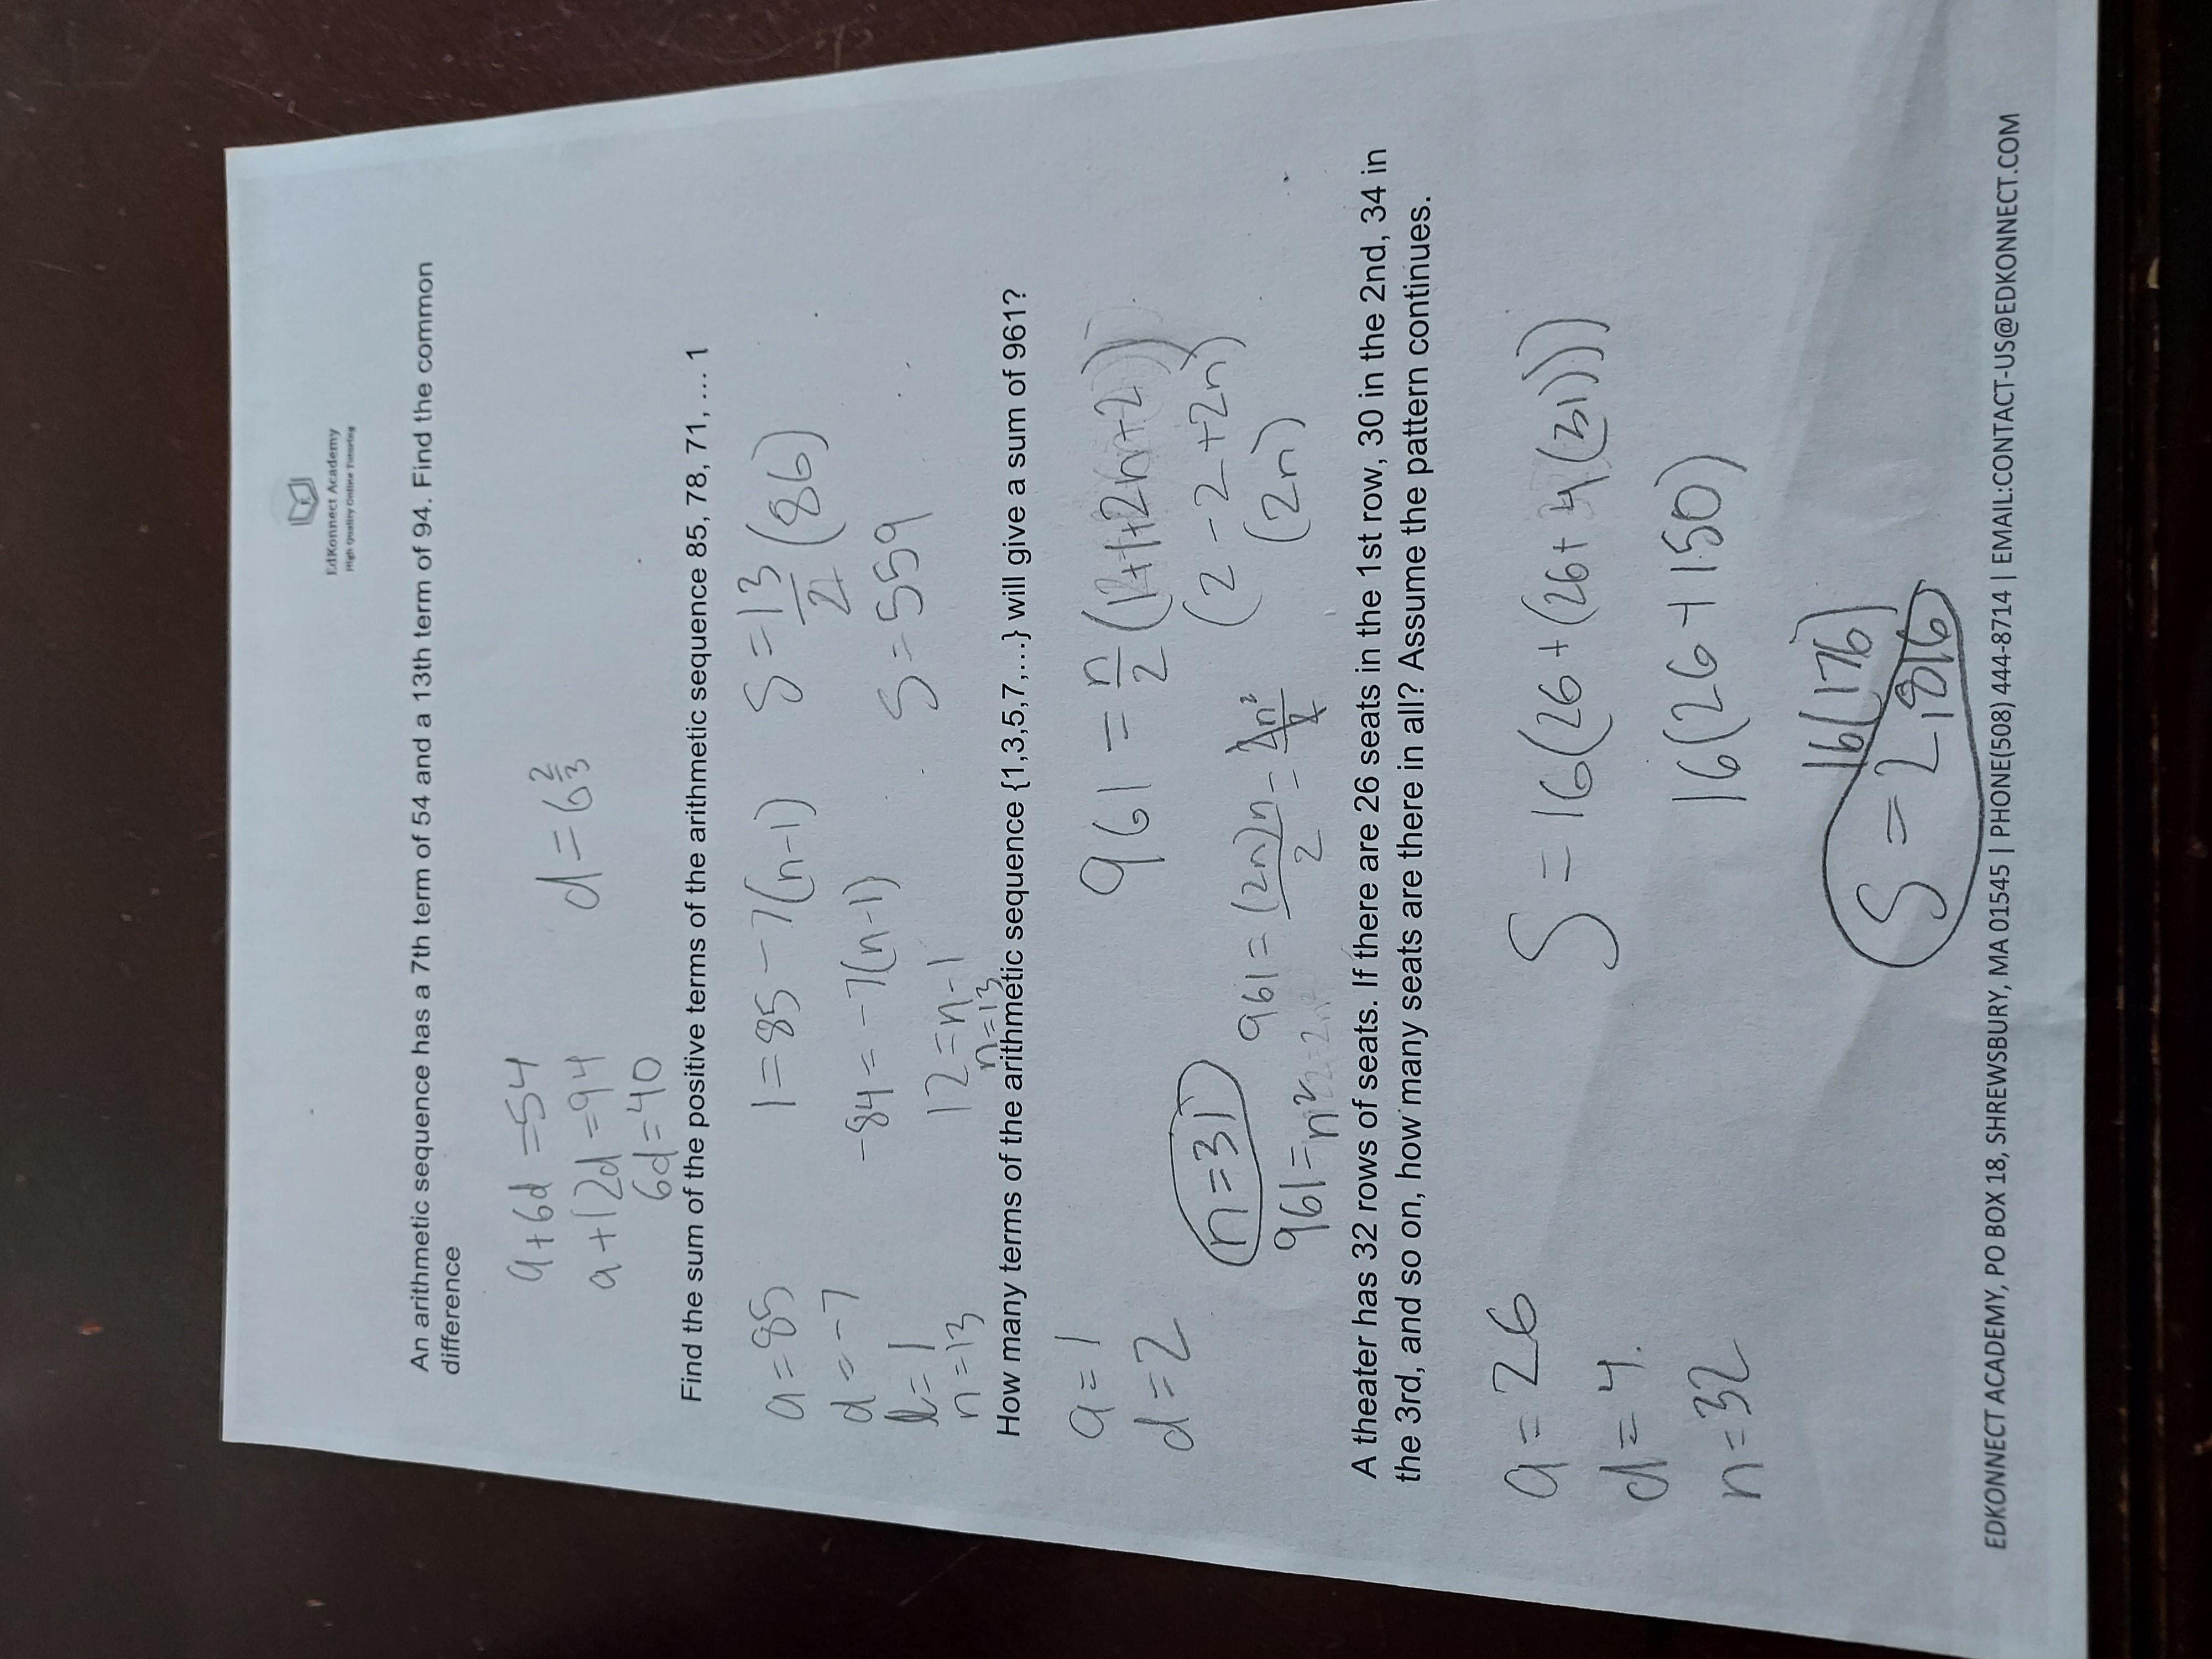 EdKonnect Academy
High Quality Online Tutoring
An arithmetic sequence has a 7th term of 54 and a 13th term of 94. Find the common
difference
a+6d=54
a+12d=94
6d=40
d=6 2/3
Find the sum of the positive terms of the arithmetic sequence 85, 78, 71, ... 1
a=85
d=-7
l=1
n=13
1=85-7(n-1)
-84=-7(n-1)
12=n-1
n=13
S=13/2(86)
S=559
How many terms of the arithmetic sequence {1,3,5,7,...} will give a sum of 961?
a=1
d=2
961=n/2(1+1+2n-2)
(2-2+2n)
(2n)
961=(2n)n/2=2n²/2
961=n²
n=31
A theater has 32 rows of seats. If there are 26 seats in the 1st row, 30 in the 2nd, 34 in
the 3rd, and so on, how many seats are there in all? Assume the pattern continues.
a=26
d=4.
n=32
S=16(26+(26+4(31)))
16(26+150)
16(176)
S=2,816
EDKONNECT ACADEMY, PO BOX 18, SHREWSBURY, MA 01545 | PHONE(508) 444-8714 | EMAIL:CONTACT-US@EDKONNECT.COM